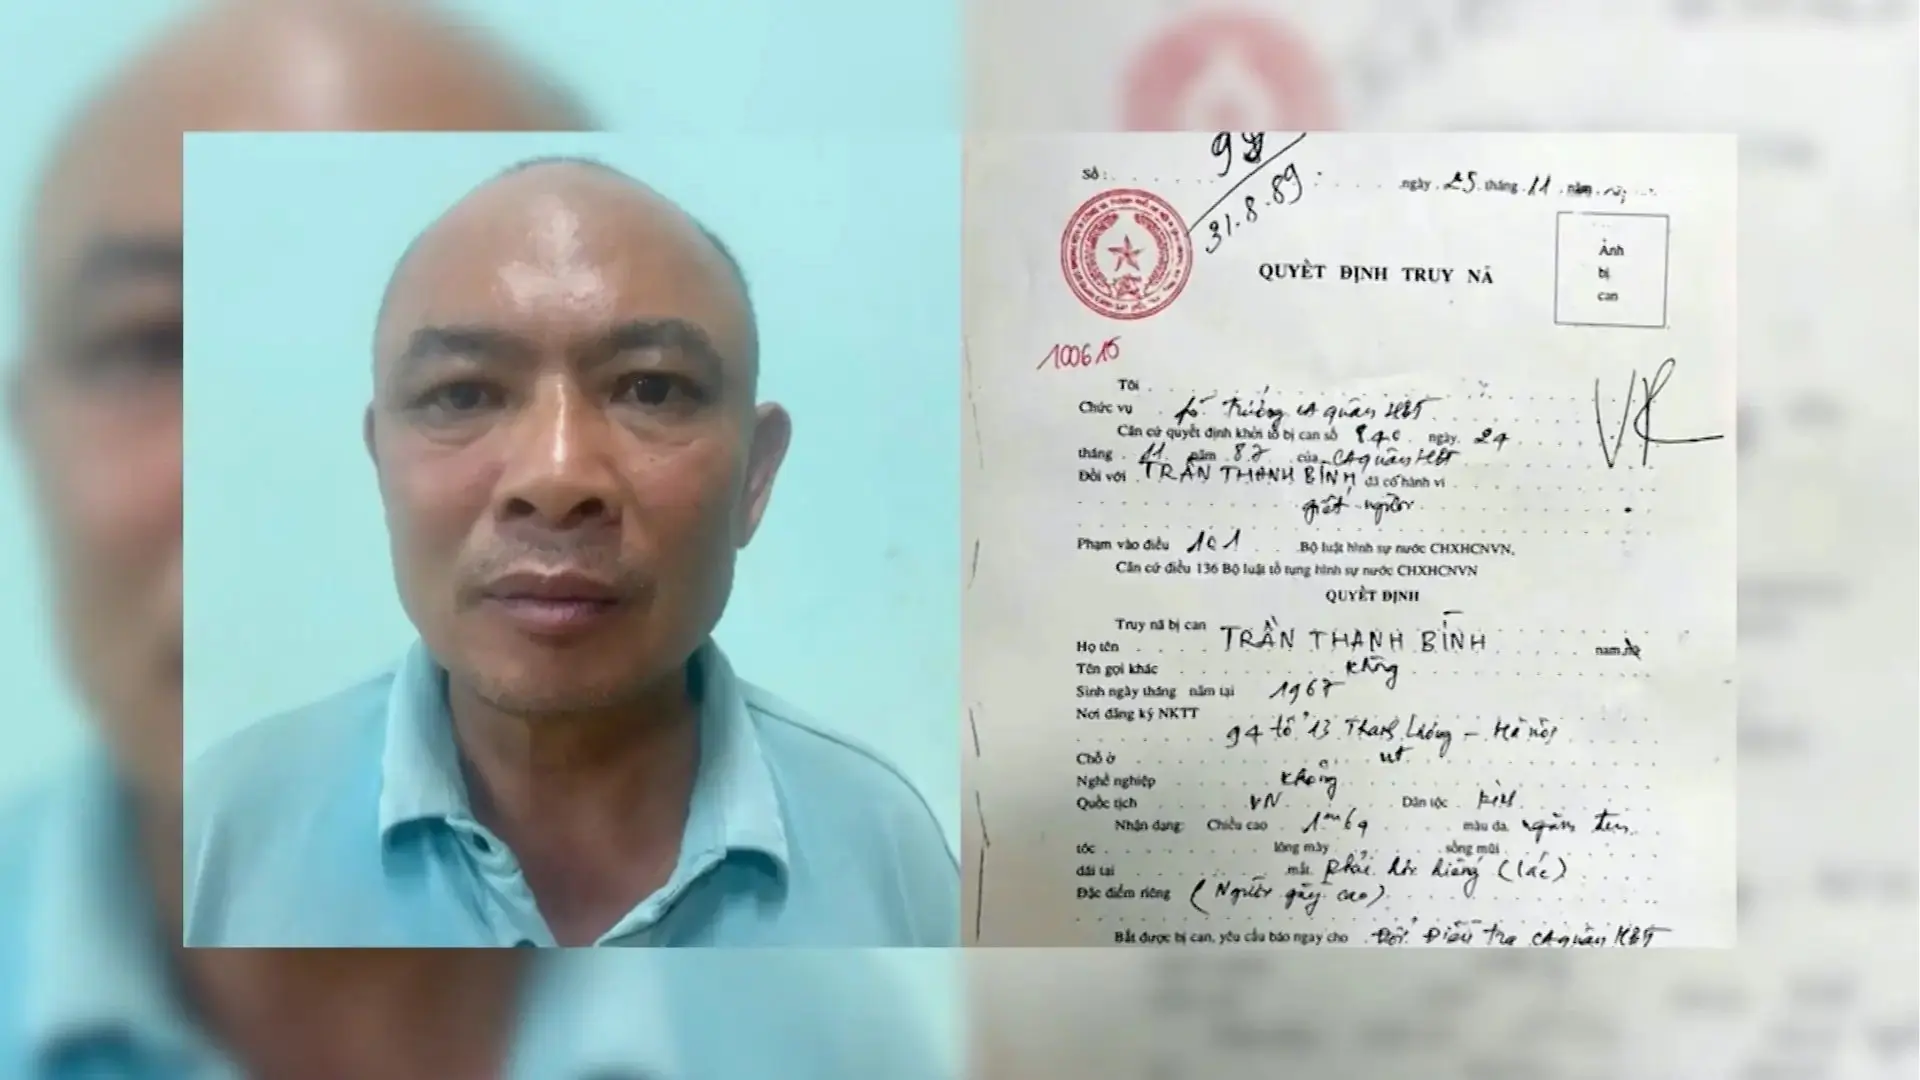 Số :
98
31.8.89
ngày 25 tháng 11 năm
QUYẾT ĐỊNH TRUY NÃ
Ảnh
bị
can
100615
Tôi
Chức vụ fó Trưởng CA quận HBT
Căn cứ quyết định khởi tố bị can số 840 ngày 24
tháng 11 năm 87 của CA quận HBT
Đối với TRẦN THANH BÍNH đã có hành vi
giết người
Phạm vào điều 101 Bộ luật hình sự nước CHXHCNVN,
Căn cứ điều 136 Bộ luật tố tụng hình sự nước CHXHCNVN
QUYẾT ĐỊNH
Truy nã bị can
Họ tên TRẦN THANH BÍNH nam nữ
Tên gọi khác không
Sinh ngày tháng năm tại 1967
Nơi đăng ký NKTT
94 tổ 13 Thanh Lương - Hà nội
Chỗ ở nt
Nghề nghiệp không
Quốc tịch VN Dân tộc kinh
Nhận dạng: Chiều cao 1m69 màu da ngăm đen
tóc lông mày sống mũi
dái tai mắt phải hơi hiếng (lác)
Đặc điểm riêng (Người gầy cao)
Bắt được bị can, yêu cầu báo ngay cho Đội Điều tra CA quận HBT